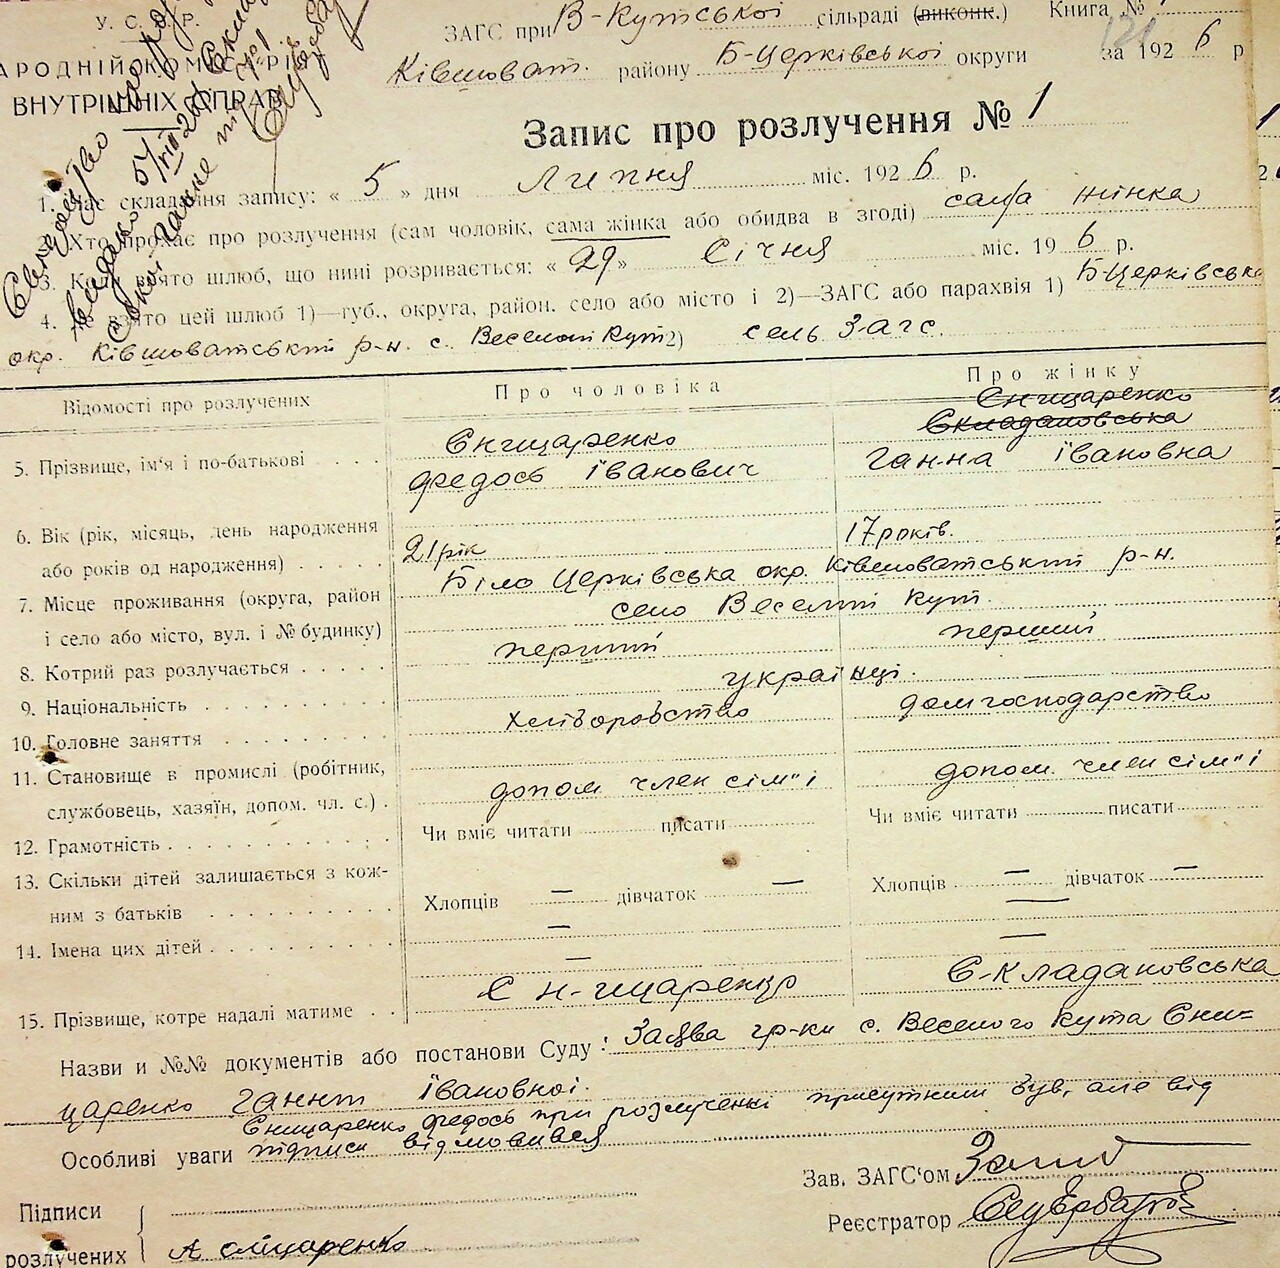 У. С. Р. Р.
НАРОДНІЙ КОМІСАРІЯТ
ВНУТРІШНІХ СПРАВ
ЗАГС при В-Кутської сільраді (виконк.) Книга №
Ківшоват. району Б-Церківської округи за 1926 р
Запис про розлучення № 1
1. Час складання запису: « 5 » дня Липня міс. 1926 р.
2. Хто прохає про розлучення (сам чоловік, сама жінка або обидва в згоді) сама жінка
3. Коли взято шлюб, що нині розривається: « 29 » Січня міс. 19 6 р.
4. Де взято цей шлюб 1)—губ., округа, район. село або місто і 2)—ЗАГС або парахвія 1) Б-Церківська
окр. Ківшоватський р-н. с. Веселой Кут 2) сель Загс.
Відомості про розлучених
Про чоловіка
Про жінку
5. Прізвище, ім'я і по-батькові
Єнищаренко
Федось Іванович
Єнищаренко
Складановська
Ганна Івановна
6. Вік (рік, місяць, день народження
або років од народження)
21 рік
17 років.
7. Місце проживання (округа, район
і село або місто, вул. і № будинку)
Біло Церківська окр. Ківшоватський р-н.
село Веселий Кут.
8. Котрий раз розлучається
перший
перший
9. Національність
українці.
10. Головне заняття
хліборобство
домгосподарство
11. Становище в промислі (робітник,
службовець, хазяїн, допом. чл. с.)
допом член сім"ї
допом. член сім"ї
12. Грамотність
Чи вміє читати писати
Чи вміє читати писати
13. Скільки дітей залишається з кож-
ним з батьків
Хлопців — дівчаток —
Хлопців — дівчаток —
14. Імена цих дітей
—
—
15. Прізвище, котре надалі матиме
Єн-ищаренко
Є-кладановська
Назви и №№ документів або постанови Суду: Заява гр-ки с. Веселого Кута Єни=
царенко Ганни Івановної.
Єнищаренко Федось при розлученні присутним був, але від
Особливі уваги підписи відмовився
Зав. ЗАГС'ом
Реєстратор
Підписи
розлучених